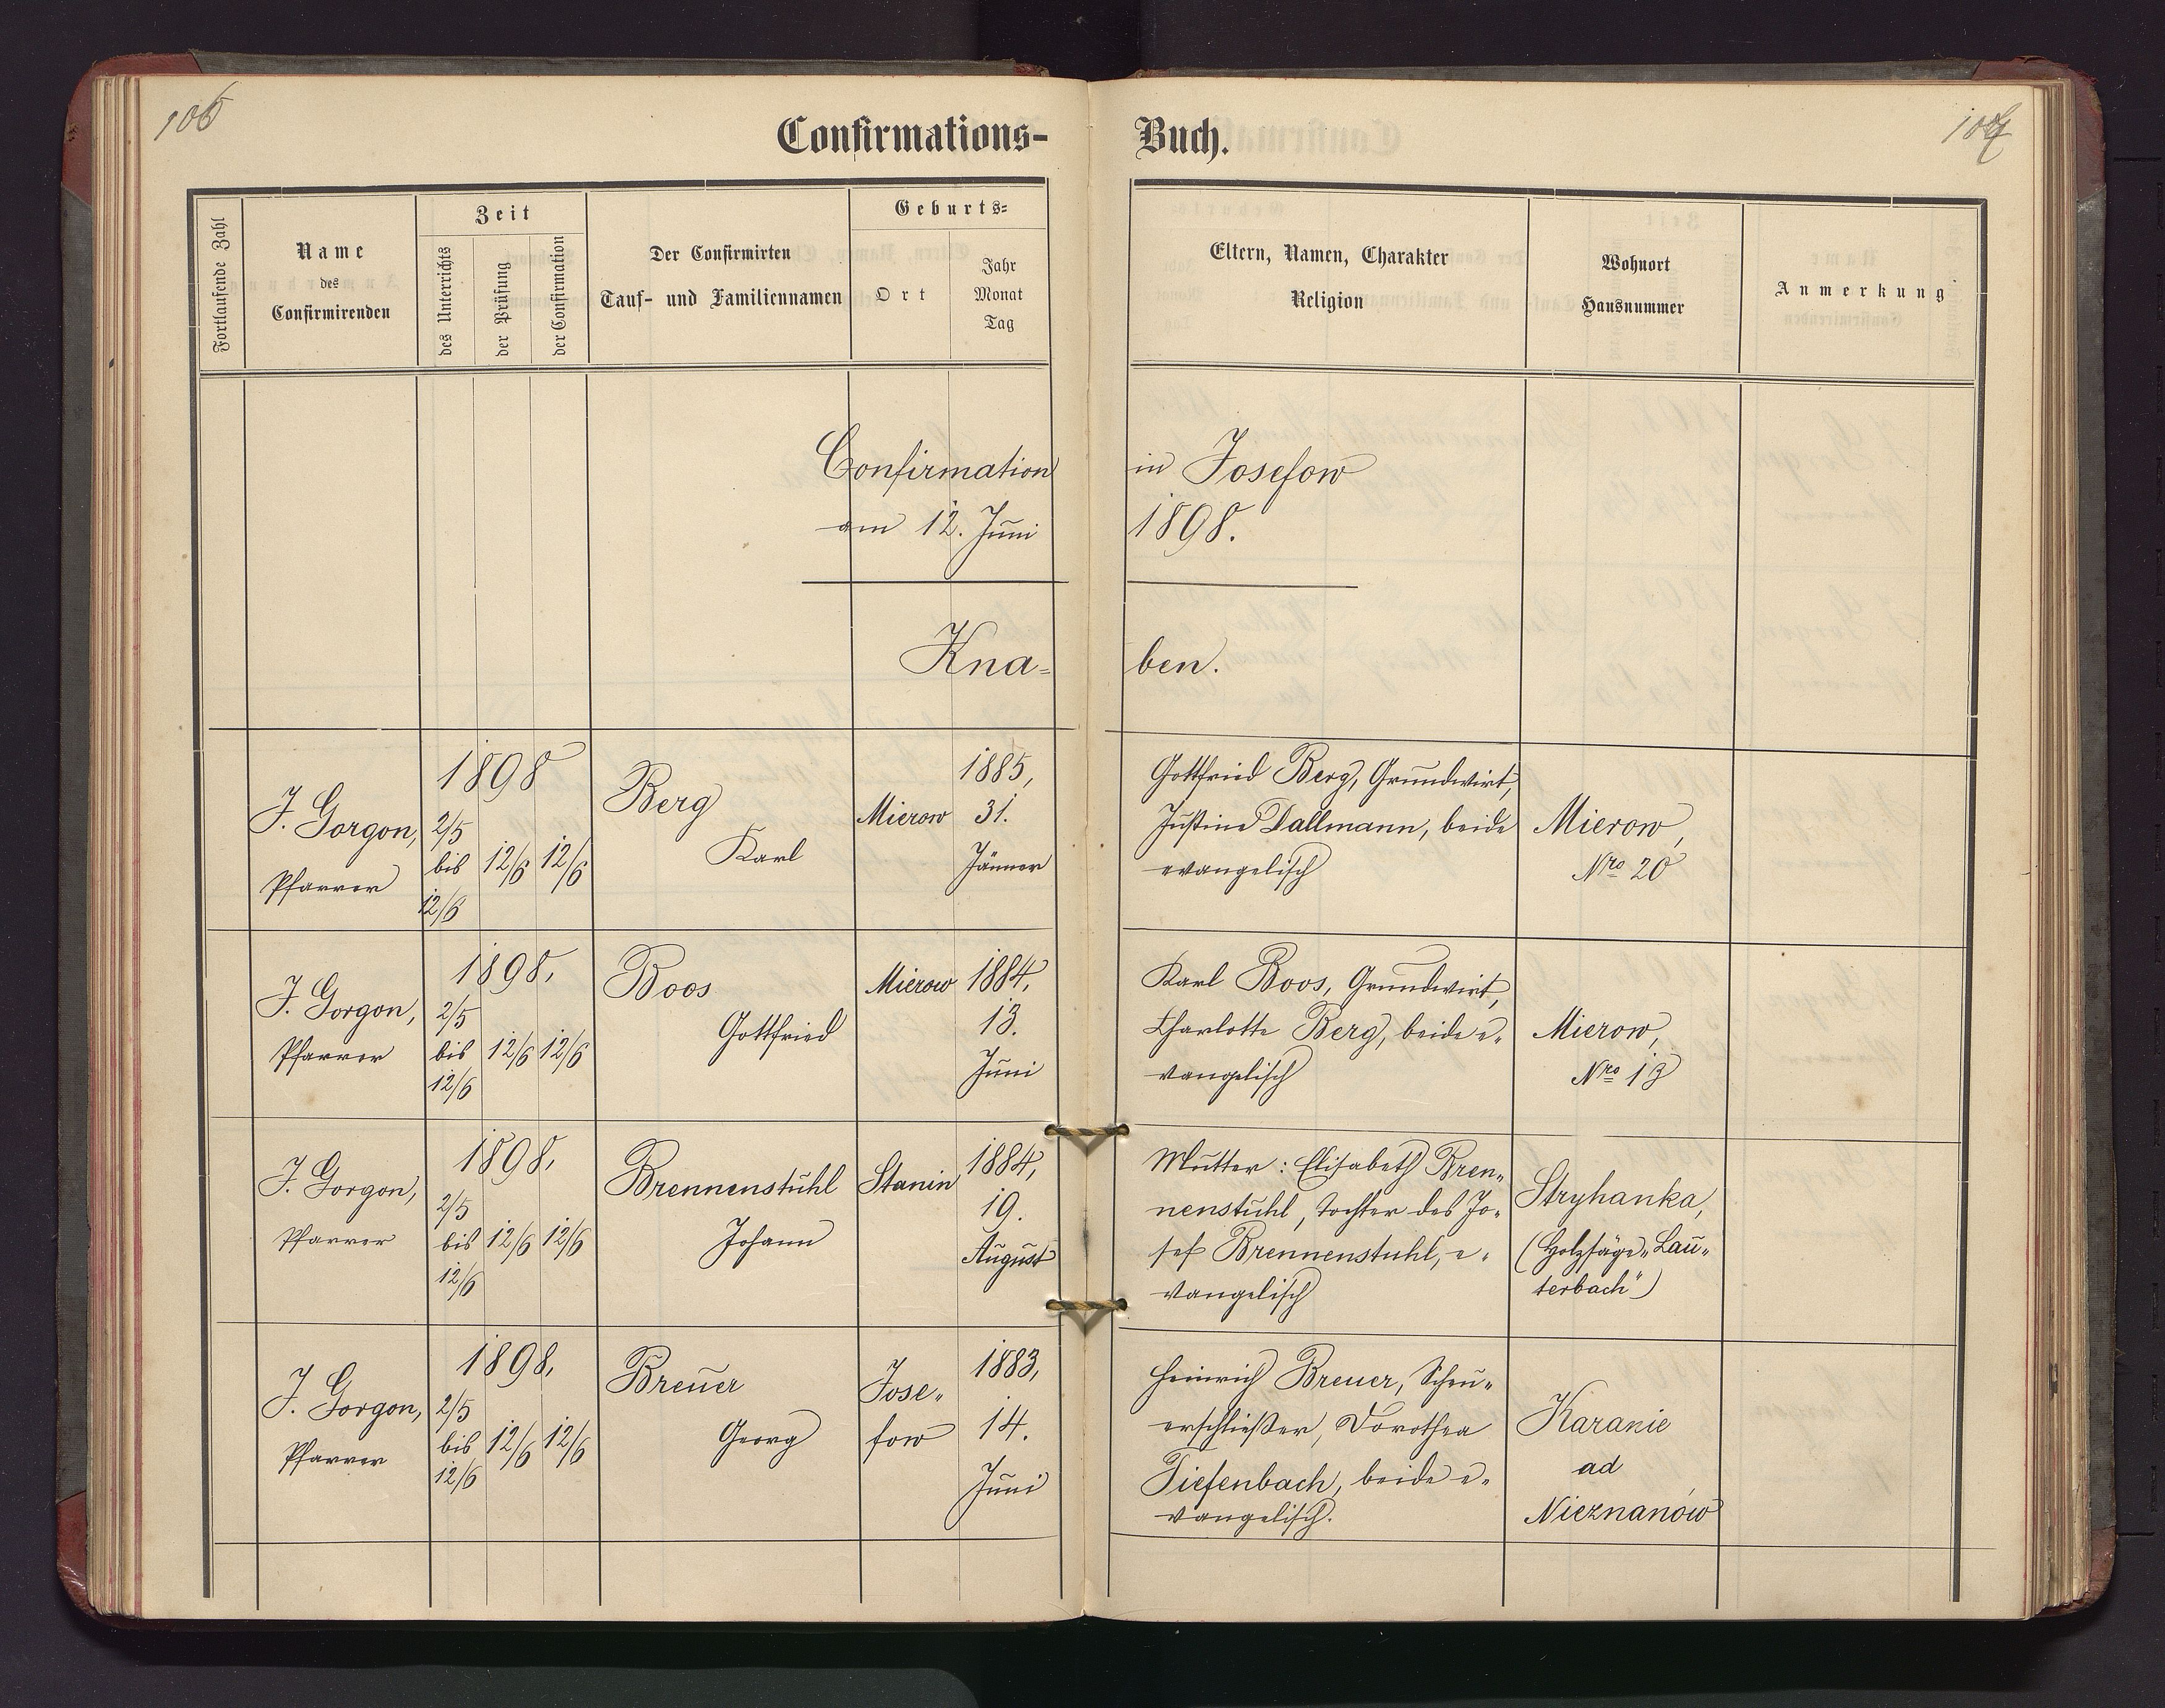 106
Confirmations-
Buch.
Fortlaufende Zahl
Name
des
Confirmirenden
Zeit
des Unterrichts
der Prüfung
der Confirmation
Der Confirmirten
Tauf- und Familiennamen
Geburts-
Ort
Jahr
Monat
Tag
Eltern, Namen, Charakter
Religion
Wohnort
Hausnummer
Anmerkung
Confirmation in Josefow
am 12. Juni 1898.
Kna-
ben.
J. Gorgon,
Pfarrer
1898
2/5
bis
12/6
12/6
12/6
Berg
Karl
Mierow
1885,
31.
Jänner
Gottfried Berg, Grundwirt,
Justine Dallmann, beide
evangelisch
Mierow,
Nro 20
J. Gorgon,
Pfarrer
1898,
2/5
bis
12/6
12/6
12/6
Boos
Gottfried
Mierow
1884,
13.
Juni
Karl Boos, Grundwirt,
Charlotte Berg, beide e-
vangelisch
Mierow,
Nro 13
J. Gorgon,
Pfarrer
1898,
2/5
bis
12/6
12/6
12/6
Brennenstuhl
Johann
Stanin
1884,
19.
August
Mutter: Elisabeth Bren-
nenstuhl, Tochter des Jo-
sef Brennenstuhl, e-
vangelisch
Stryhanka,
(Holzsäge „Lau-
terbach")
J. Gorgon,
Pfarrer
1898,
2/5
bis
12/6
12/6
12/6
Breuer
Georg
Jose-
fow
1883,
14.
Juni
Heinrich Breuer, Scheu-
erschließer, Dorothea
Tiefenbach, beide e-
vangelisch.
Karanie
ad
Nieznanów